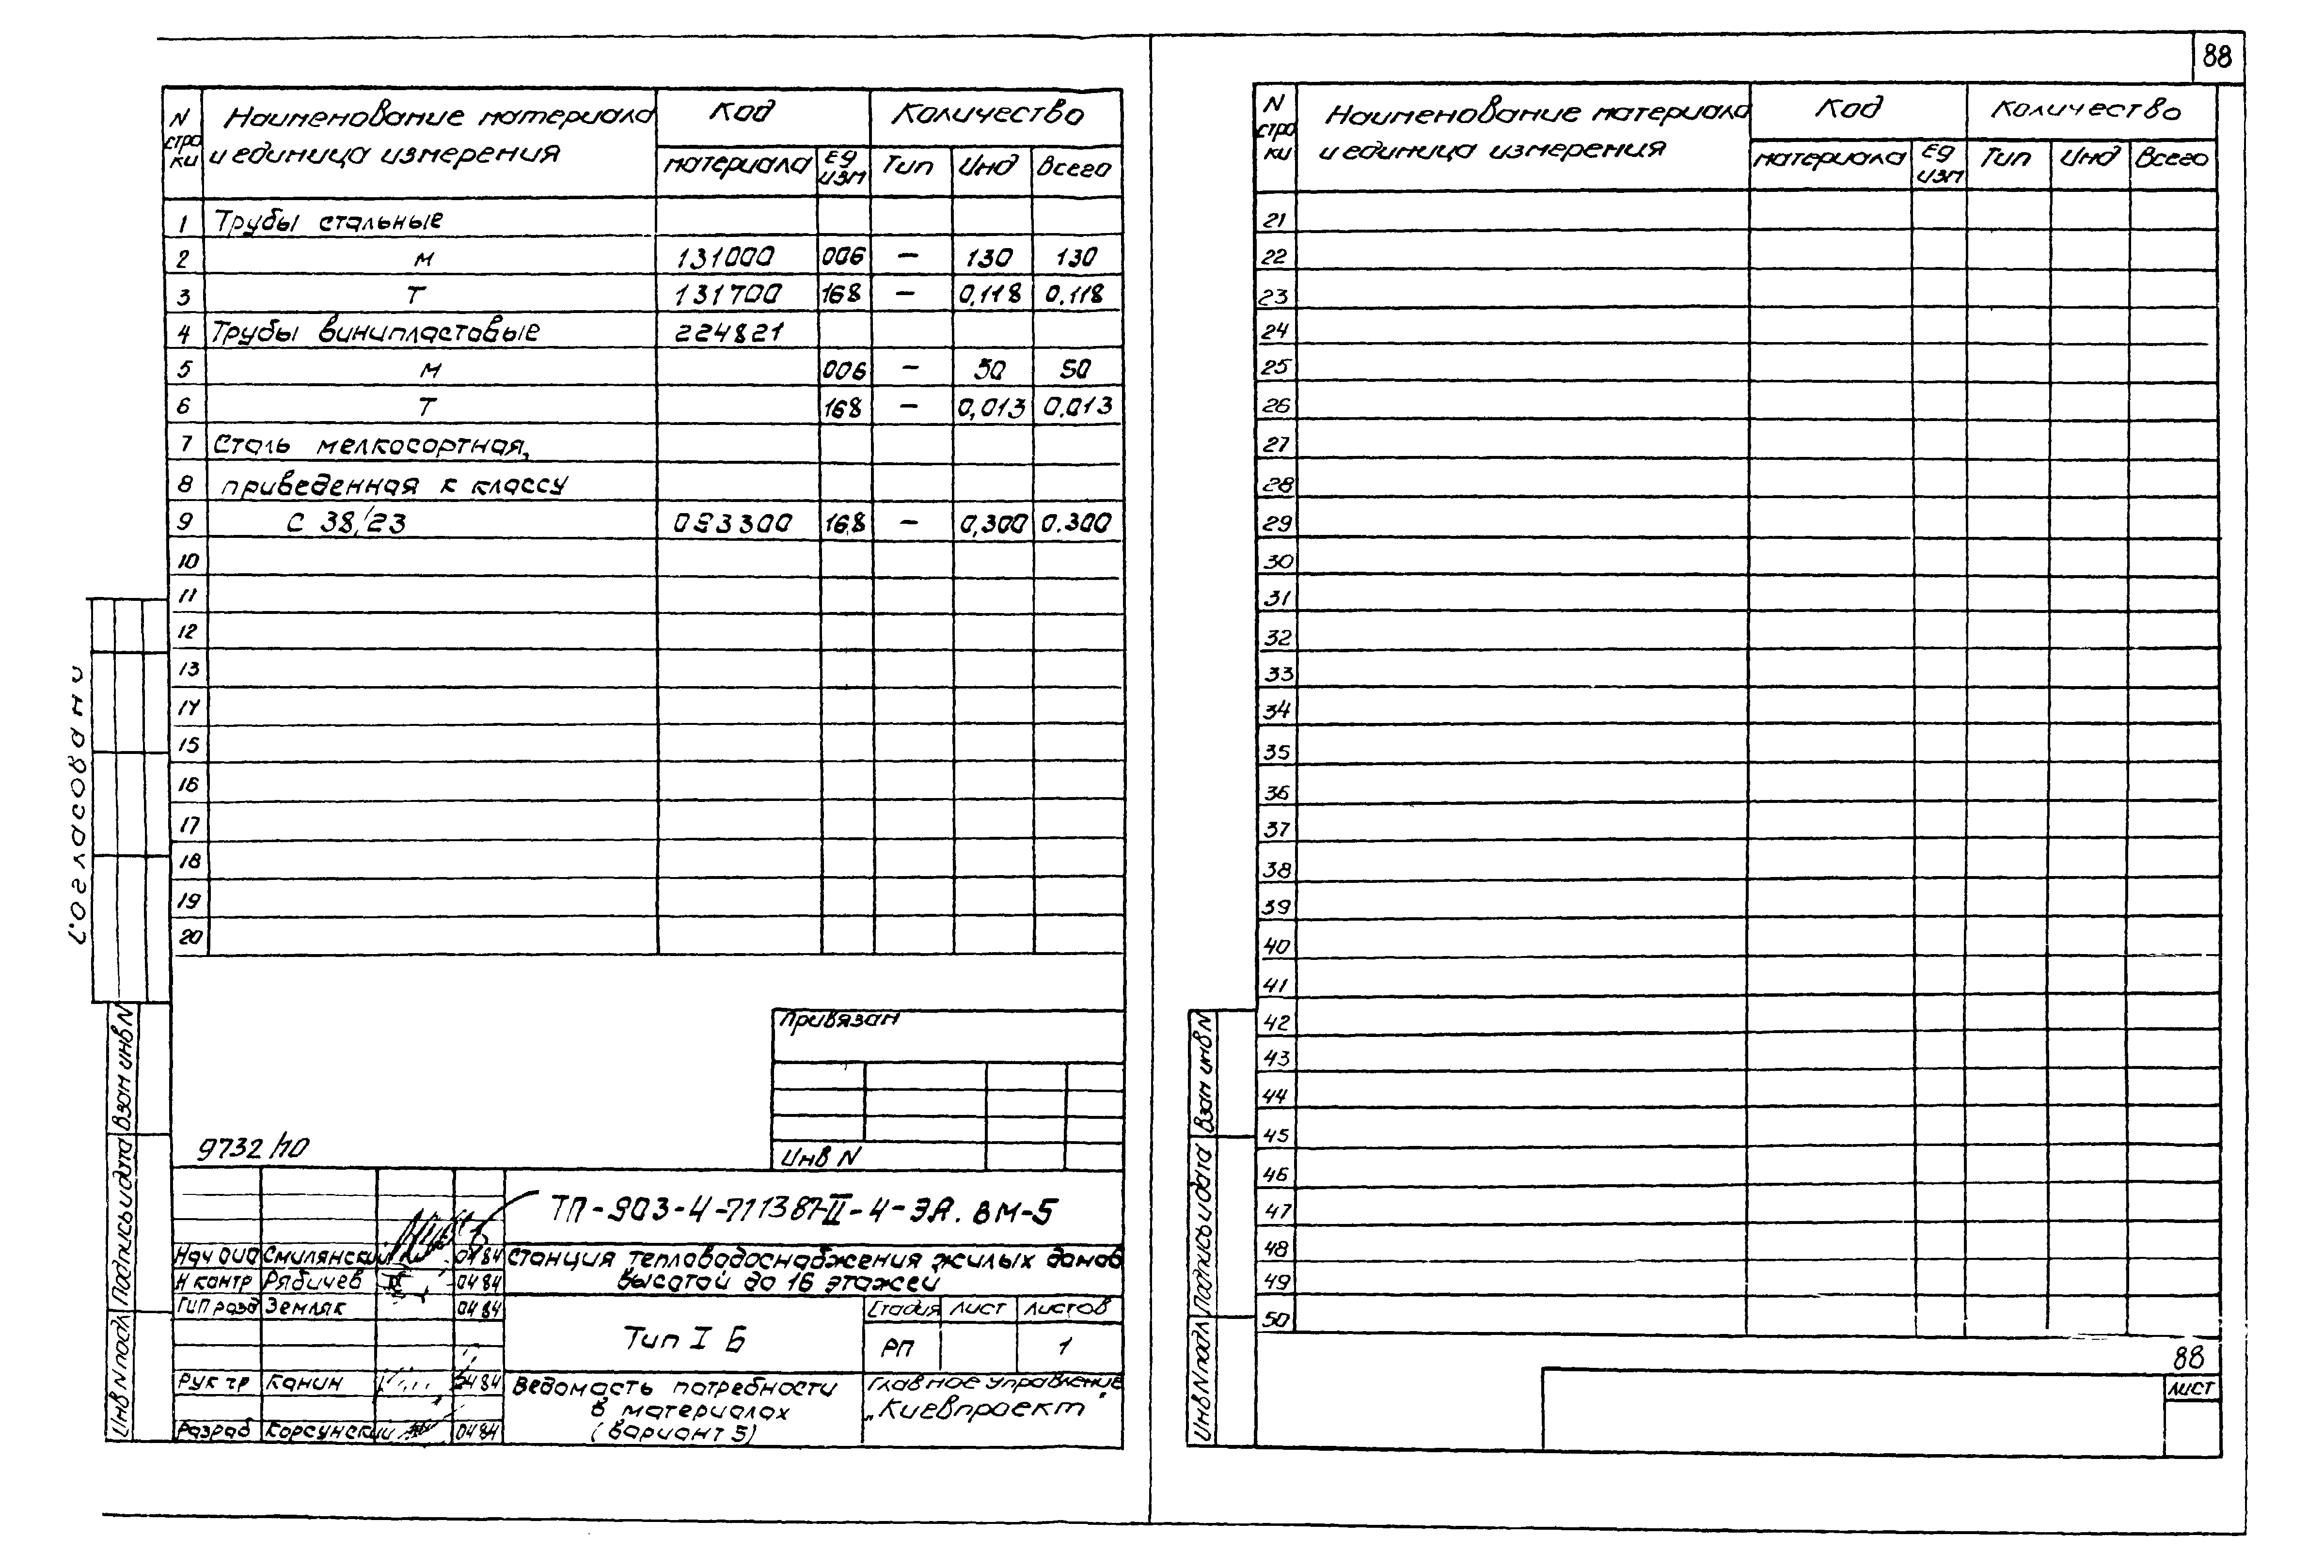 88
N строки Наименование материала и единица измерения Код Количество
материала Ед изм Тип Инд Всего
1 Трубы стальные
2 м 131000 006 — 130 130
3 Т 131700 168 — 0,118 0.118
4 Трубы винипластовые 224821
5 м 006 — 50 50
6 Т 168 — 0,013 0.013
7 Сталь мелкосортная,
8 приведенная к классу
9 С 38/23 093300 168 — 0,300 0.300
10
11
12
13
14
15
16
17
18
19
20
Согласовано
Взам инв N
Подпись и дата
Инв N подл
Привязан
Инв N
9732/10
ТП-903-4-711387-II-4-ЭА.ВМ-5
Нач ОИО Смилянский 0484
Н контр Рябичев 0484
ГИП разд Земляк 0484
Рук гр Канин 0484
Разраб Корсунский 0484
Станция тепловодоснабжения жилых домов
высотой до 16 этажей
Тип I Б
Стадия Лист Листов
РП 1
Ведомость потребности
в материалах
(вариант 5)
Главное управление
„Киевпроект"
N строки Наименование материала и единица измерения Код Количество
материала Ед изм Тип Инд Всего
21
22
23
24
25
26
27
28
29
30
31
32
33
34
35
36
37
38
39
40
41
42
43
44
45
46
47
48
49
50
Взам инв N
Подпись и дата
Инв N подл
88
Лист